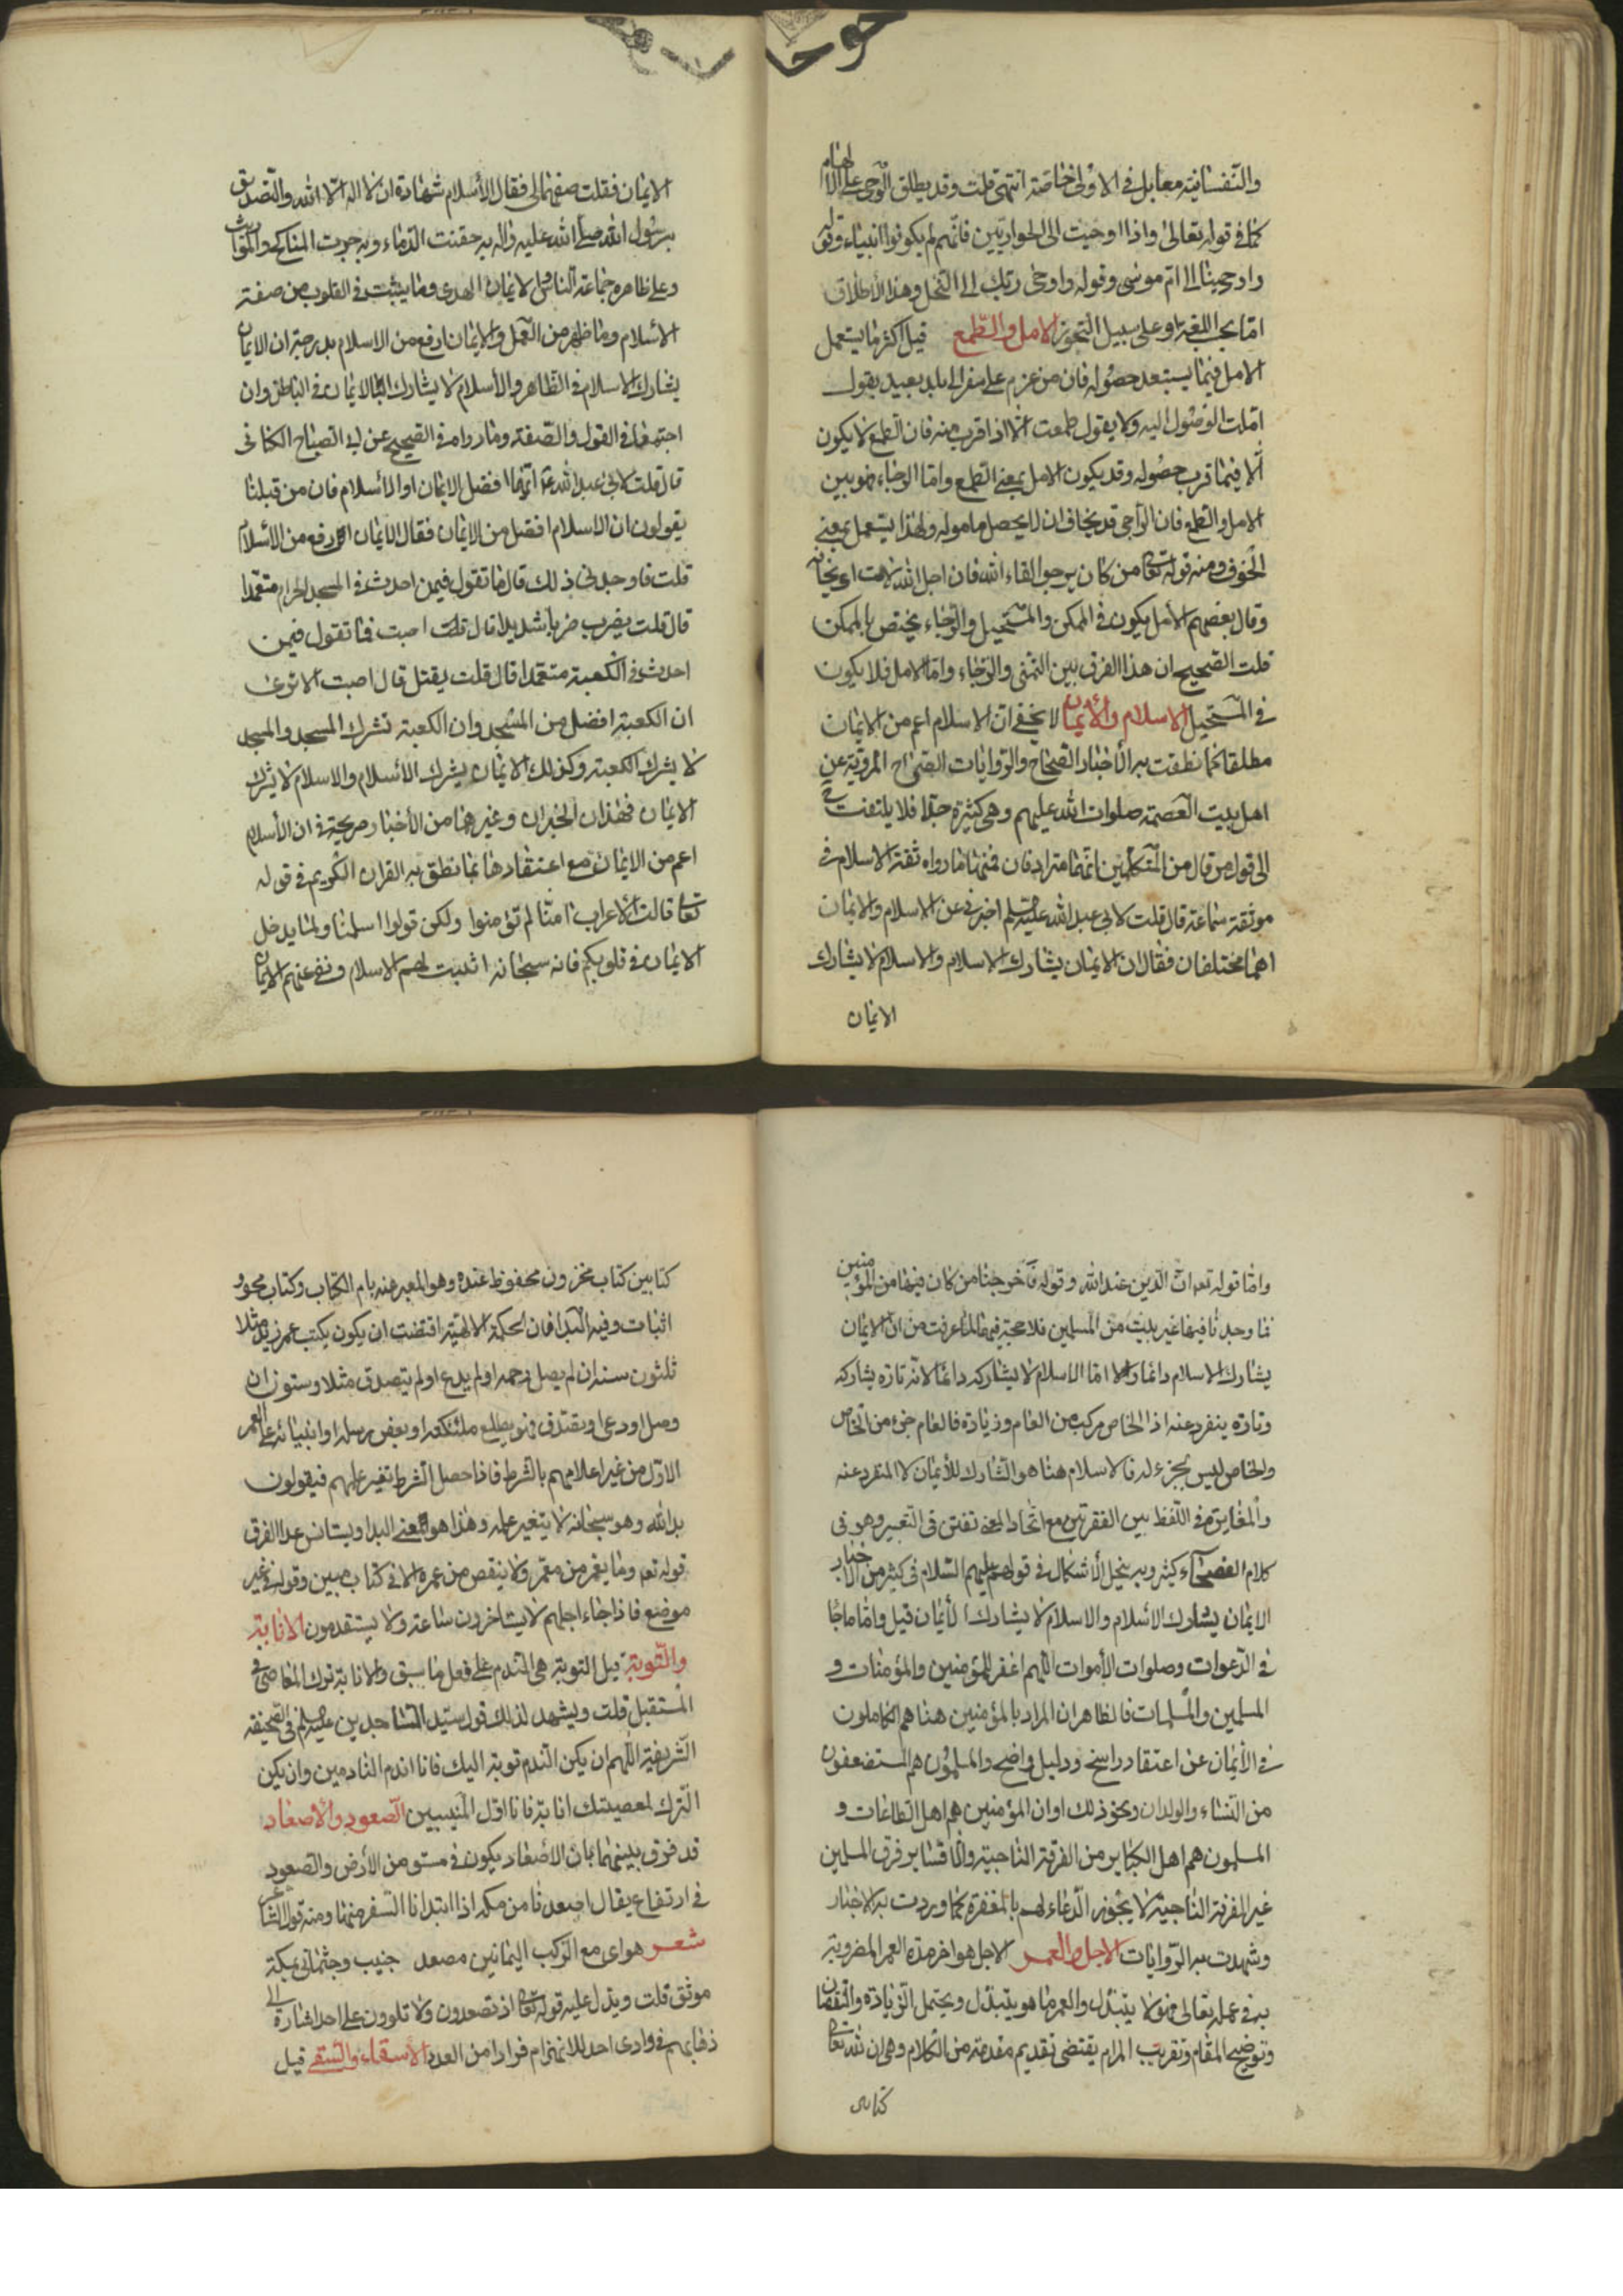 والنفسانية معا بل في الاولى خاصة انتهى قلت وقد يطلق الوحي على الالهام
كما في قوله تعالى واذا اوحيت الى الحواريين فانهم لم يكونوا انبياء وقوله
واوحينا الى ام موسى وقوله واوحى ربك الى النحل وهذا الاطلاق
اما بحسب اللغة او على سبيل التجوز الامل والطمع قيل اكثر ما يستعمل
الامل فيما يستبعد حصوله فان من عزم على سفر الى بلد بعيد يقول
املت الوصول اليه ولا يقول طمعت الا اذا قرب منه فان الطمع لا يكون
الا فيما قرب حصوله وقد يكون الامل بمعنى الطمع واما الرجاء فهو بين
الامل والطمع فان الراجي قد يخاف ان لا يحصل مامولة ولهذا يستعمل بمعنى
الخوف ومنه قوله تعالى من كان يرجو لقاء الله فان اجل الله لات اي يخافه
وقال بعضهم الامل يكون في الممكن والمستحيل والرجاء يختص بالممكن
قلت الصحيح ان هذا الفرق بين التمني والرجاء واما الامل فلا يكون
في المستحيل الاسلام والايمان لا يخفى ان الاسلام اعم من الايمان
مطلقا كما نطقت به الاخبار الصحاح والروايات الصراح المروية عن
اهل بيت العصمة صلوات الله عليهم وهي كثيرة جدا فلا يلتفت
الى قول من قال من المتكلمين انهما مترادفان فمنها ما رواه ثقة الاسلام في
موثقة سماعة قال قلت لابي عبد الله عليه السلم اخبرني عن الاسلام والايمان
اهما مختلفان فقال ان الايمان يشارك الاسلام والاسلام لا يشارك
الايمان
الايمان فقلت صفهما لي فقال الاسلام شهادة ان لا اله الا الله والتصديق
برسول الله صلى الله عليه واله به حقنت الدماء وبه جرت المناكح والمواريث
وعلى ظاهره جماعة الناس والايمان الهدى وما يثبت في القلوب من صفة
الاسلام وما ظهر من العمل والايمان ارفع من الاسلام بدرجة ان الايمان
يشارك الاسلام في الظاهر والاسلام لا يشارك الايمان في الباطن وان
اجتمعا في القول والصفة وما رواه في الصحيح عن ابي الصباح الكناني
قال قلت لابي عبد الله ع ايهما افضل الايمان او الاسلام فان من قبلنا
يقولون ان الاسلام افضل من الايمان فقال الايمان ارفع من الاسلام
قلت فاوجدني ذلك قال ما تقول فيمن احدث في المسجد الحرام متعمدا
قال قلت يضرب ضربا شديدا قال قلت اصبت فما تقول فيمن
احدث في الكعبة متعمدا قال قلت يقتل قال اصبت الا ترى
ان الكعبة افضل من المسجد وان الكعبة تشرك المسجد والمسجد
لا يشرك الكعبة وكذلك الايمان يشرك الاسلام والاسلام لا يشرك
الايمان فهذان الخبران وغيرهما من الاخبار صريحة في ان الاسلام
اعم من الايمان مع اعتقادها بما نطق به القران الكريم في قوله
تعالى قالت الاعراب امنا لم تؤمنوا ولكن قولوا اسلمنا ولما يدخل
الايمان في قلوبكم فانه سبحانه اثبت لهم الاسلام ونفى عنهم الايمان
واما قوله تعه ان الدين عند الله وقوله فاخرجنا من كان فيها من المؤمنين
فما وجدنا فيها غير بيت من المسلمين فلا حجة فيهما لما عرفت من ان الايمان
يشارك الاسلام دائما والا اما الاسلام لا يشاركه دائما لانه تارة يشاركه
وتارة ينفرد عنه اذ الخاص مركب من العام وزيادة فالعام جزء من الخاص
والخاص ليس بجزء له فالاسلام هنا هو المشارك للايمان لا المنفرد عنه
والمغايرة في اللفظ بين الفقرتين مع اتحاد المعنى تفنن في التعبير وهو في
كلام الفصحاء كثير وبه ينحل الاشكال في قولهم عليهم السلام في كثير من الاخبار
الايمان يشارك الاسلام والاسلام لا يشارك الايمان قيل واما ما جا
في الدعوات وصلوات الاموات اللهم اغفر للمؤمنين والمؤمنات و
المسلمين والمسلمات فالظاهر ان المراد بالمؤمنين هنا هم الكاملون
في الايمان عن اعتقاد راسخ ودليل واضح والمسلمون هم المستضعفون
من النساء والولدان ونحو ذلك او ان المؤمنين هم اهل الطاعات و
المسلمون هم اهل الكبائر من الفرقة الناجية والا فسائر فرق المسلمين
غير الفرقة الناجية لا يجوز الدعاء لهم بالمغفرة كما وردت به الاخبار
وشهدت به الروايات الاجل والعمر الاجل هو اخر مدة العمر المضروبة
به في علمه تعالى فهو لا يتبدل والعمر ما هو يتبدل ويحتمل الزيادة والنقصان
وتوضيح المقام وتقريب المرام يقتضي تقديم مقدمة من الكلام وهي ان لله تعالى
كتابين
كتابين كتاب مخزون محفوظ عنده وهو المعبر عنه بام الكتاب وكتاب محو و
اثبات وفيه البدا فان الحكمة الالهية اقتضت ان يكون يكتب عمر زيد مثلا
ثلثون سنة ان لم يصل رحمه او لم يدع او لم يتصدق مثلا وستون ان
وصل او دعى او تصدق فهو يطلع ملئكته او بعض رسله او انبيائه على العمر
الاول من غير اعلامهم بالشرط فاذا حصل الشرط تغير علمهم فيقولون
بدا لله وهو سبحانه لا يتغير علمه وهذا هو معنى البدا ويستانس عدا الفرق
قوله تعه وما يعمر من معمر ولا ينقص من عمره الا في كتاب مبين وقوله في غير
موضع فاذا جاء اجلهم لا يستاخرون ساعة ولا يستقدمون الانابة
والتوبة قيل التوبة هي الندم على فعل ما سبق والانابة ترك المعاصي في
المستقبل قلت ويشهد لذلك قول سيد الساجدين عليه السلم في الصحيفة
الشريفة اللهم ان يكن الندم توبة اليك فانا اندم النادمين وان يكن
الترك لمعصيتك انابة فانا اول المنيبين الصعود والاصعاد
قد فرق بينهما بان الاصعاد يكون في مستو من الارض والصعود
في ارتفاع يقال اصعدنا من مكه اذا ابتدانا السفر منها ومنه قول الشاعر
شعر هواى مع الركب اليمانين مصعد جنيب وجثماني بمكة
موثق قلت ويدل عليه قوله تعالى اذ تصعدون ولا تلوون على احد اشارة الى
ذهابهم في وادى احد للانهزام فرارا من العدو الاسقاء والسقي قيل